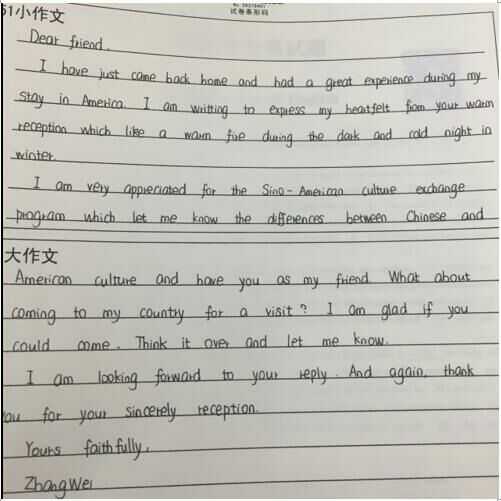 51小作文
试卷条形码
Dear friend.
I have just came back home and had a great experience during my
stay in America. I am writting to express my heartfelt from your warm
reception which like a warm fire during the dark and cold night in
winter.
I am very appreciated for the Sino-American culture exchange
program which let me know the differences between Chinese and
大作文
American culture and have you as my friend. What about
coming to my country for a visit? I am glad if you
could come. Think it over and let me know.
I am looking forward to your reply. And again, thank
you for your sincerely reception.
Yours faithfully,
Zhang Wei